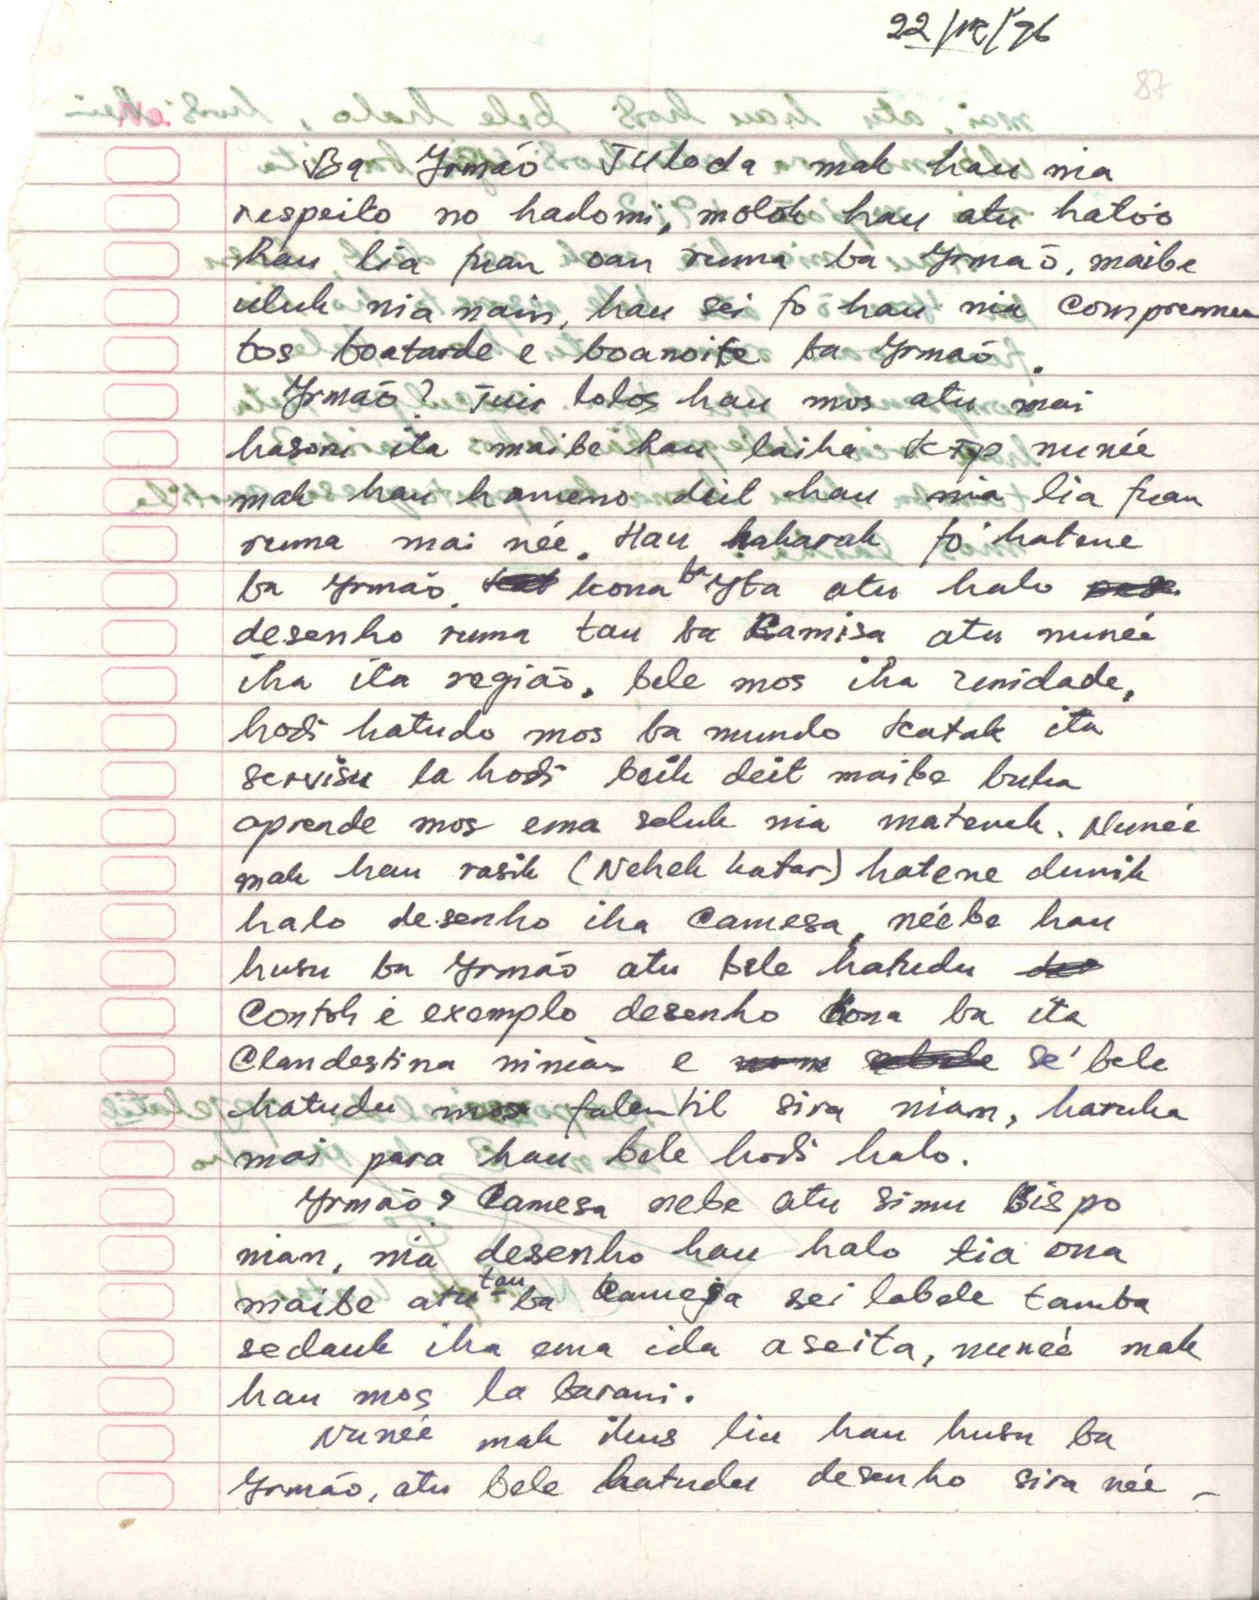 22/IX/96
87
Ba Yrmão Tuloda mak hau nia
respeito no hadomi, molok hau atu hatóo
hau lia fuan oan ruma ba Yrmaō, maibe
uluk nia nain, hau sei fo hau nia Compremen
tos boatarde e boanoite ba Yrmaō.
Yrmaō? Tuir lolos hau mos atu mai
hasoru ita maibe hau laiha KTP nunéé
mak hau hameno deit hau nia lia fuan
ruma mai néé. Hau hakarak fó hatene
ba Yrmão, kona ba Yta atu halo
desenho ruma tau ba Camisa atu nuneé
iha ita região, bele mos iha zenidade,
hodi hatudo mos ba mundo Katak ita
servisu la hodi beik deit maibe buka
aprende mos ema seluk nia matenek. Nuneé
mak hau rasik (Nehek hatar) hatene dunik
halo desenho iha Camesa, néébe hau
husu ba Yrmão atu bele hatudu
Contoh é exemplo desenho Kona ba ita
Clandestina ninian e se' bele
hatudu mos falentil sira nian, haruka
mai para hau bele hodi halo.
Yrmão? Camesa nebe atu simu Bispo
nian, nia desenho hau halo tia ona
maibe atu tau ba Camesa sei labele tamba
sedauk iha ema ida aseita, nuneé mak
hau mos la barani.
Nuneé mak ikus liu hau husu ba
Yrmão, atu bele hatudu desenho sira néé –